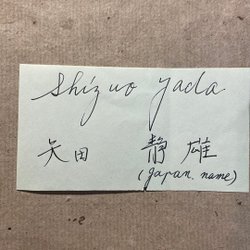 Shizuo Yada
矢田 静雄
(Japan. name)